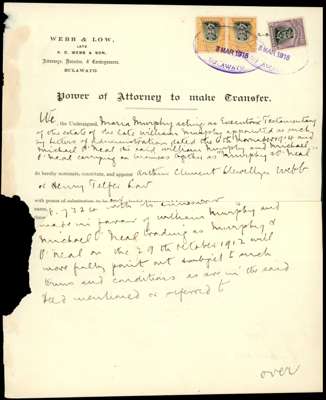 WEBB & LOW,
LATE
A. C. WEBB & SON.
Attorneys, Notaries, & Conveyancers.
BULAWAYO
3 MAR. 1915
BULAWAYO
3 MAR. 1915
BULAWAYO
Power of Attorney to make Transfer.
We the Undersigned, Maria Murphy acting as Executrix Testamentary
of the estate of the late William Murphy appointed as such
by letters of administration dated the 6th 1914 and
Michael O'Neal the said William Murphy and Michael
O'Neal carrying on business together as Murphy & O'Neal
do hereby nominate, constitute, and appoint Arthur Clement Llewellyn Webb
or Henry Telfer Low
with power of substitution to be
name,
there
made in favour of William Murphy and
Michael O'Neal trading as Murphy &
O'Neal on the 29th October 1912 will
more fully point out subject to such
terms and conditions as are in the said
deed mentioned or referred to
over